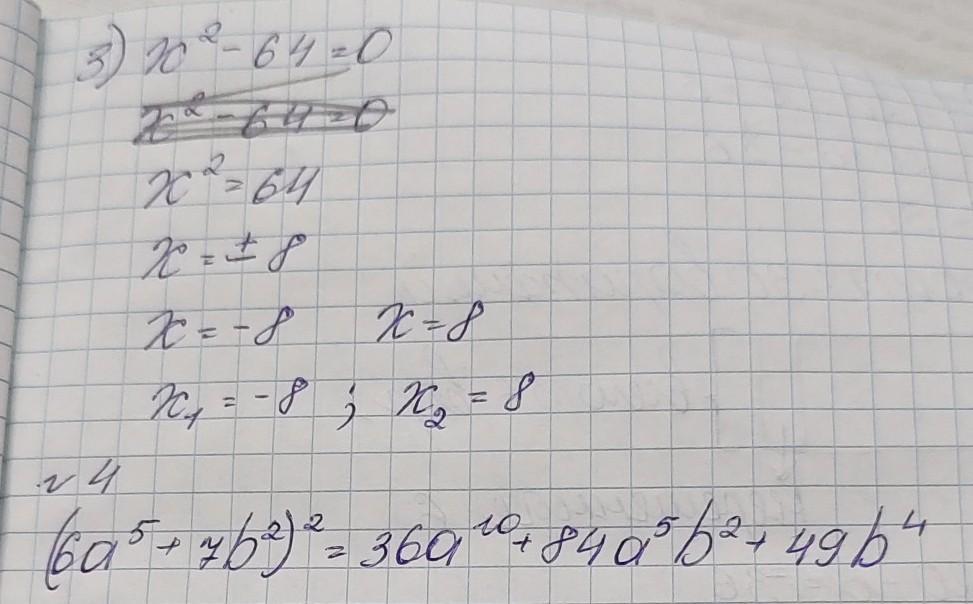 3) x² - 64 = 0
x² - 64 = 0
x² = 64
x = ± 8
x = -8 x = 8
x₁ = -8 ; x₂ = 8
№ 4
(6a⁵ + 7b²)² = 36a¹⁰ + 84a⁵b² + 49b⁴